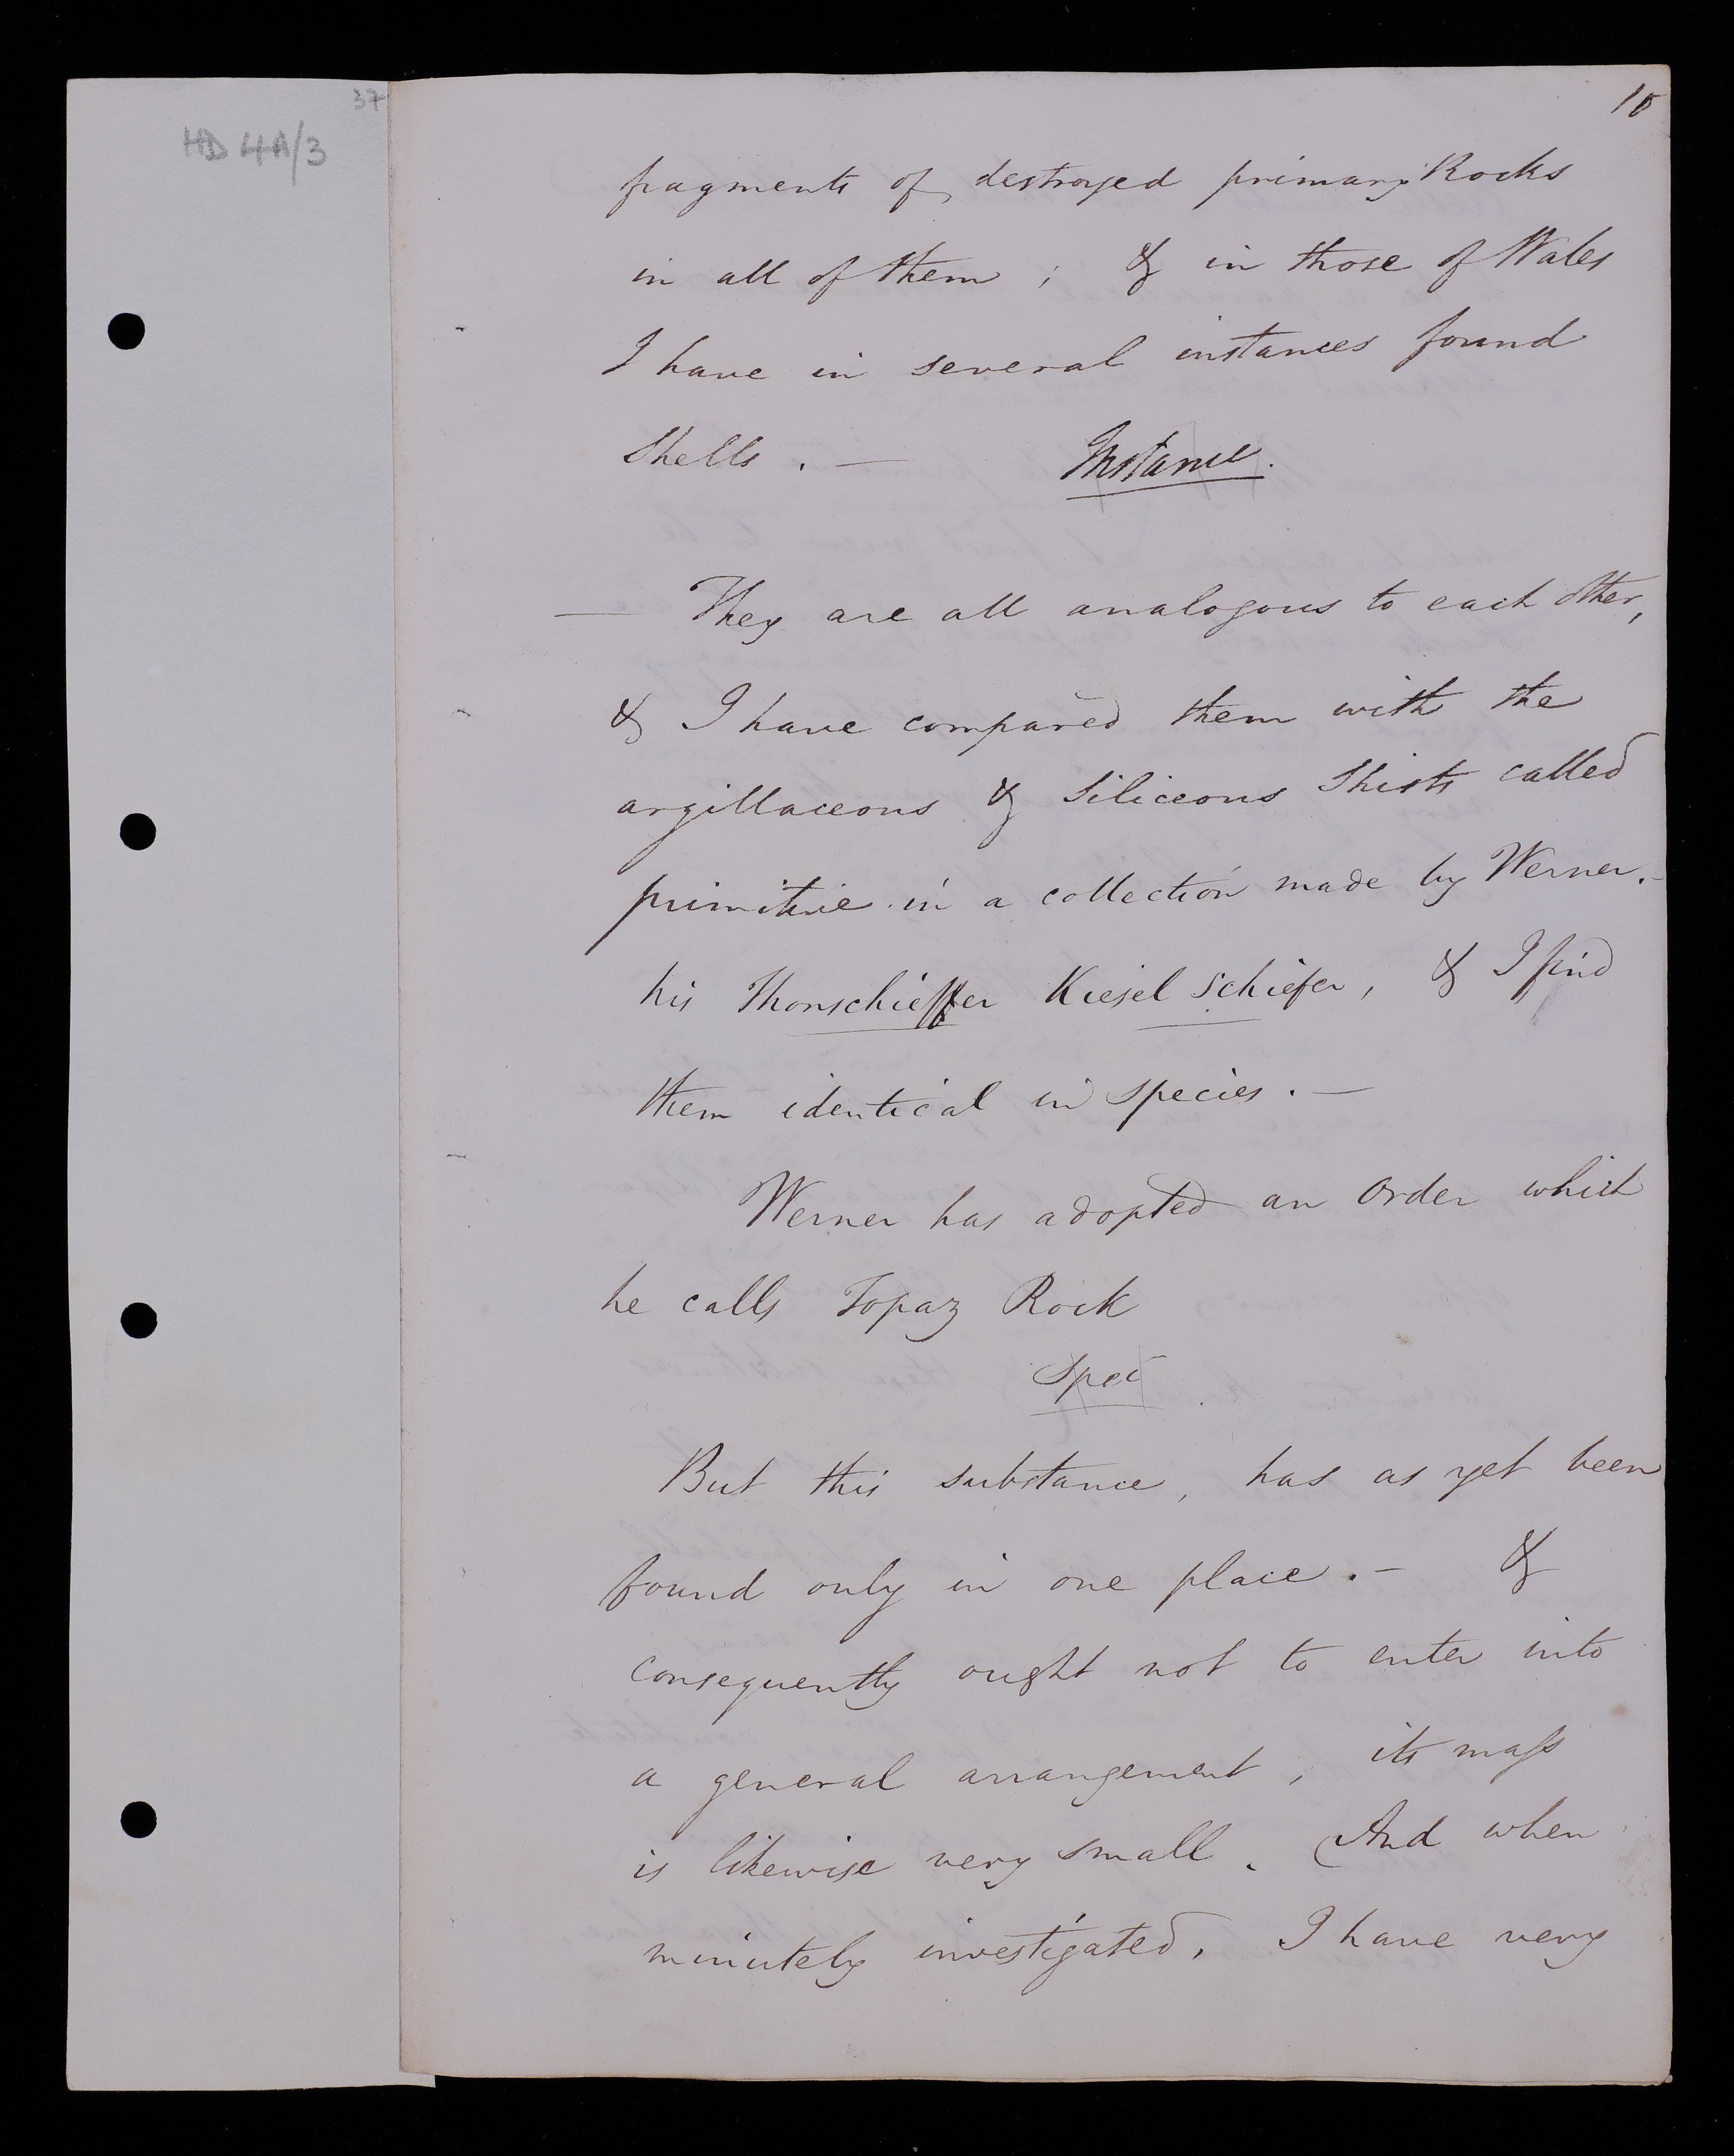 37
HD 4A/3
10
fragments of destroyed primary Rocks
in all of them ; & in those of Wales
I have in several instances found
Shells . —
Instance.
— They are all analogous to each other,
& I have compared them with the
argillaceous & Siliceous Shists called
primitive in a collection made by Werner.-
his Thonschieffer Kiesel Schiefer, & I find
them identical in species . —
Werner has adopted an order which
he calls Topaz Rock
Spec
But this substance, has as yet been
found only in one place . — &
consequently ought not to enter into
a general arrangement, its mass
is likewise very small . (And when
minutely investigated, I have very